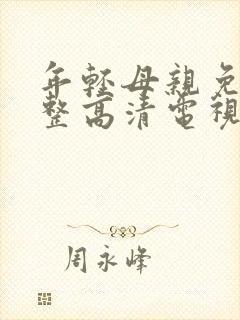 年輕母親免
整高清電視
周永峰